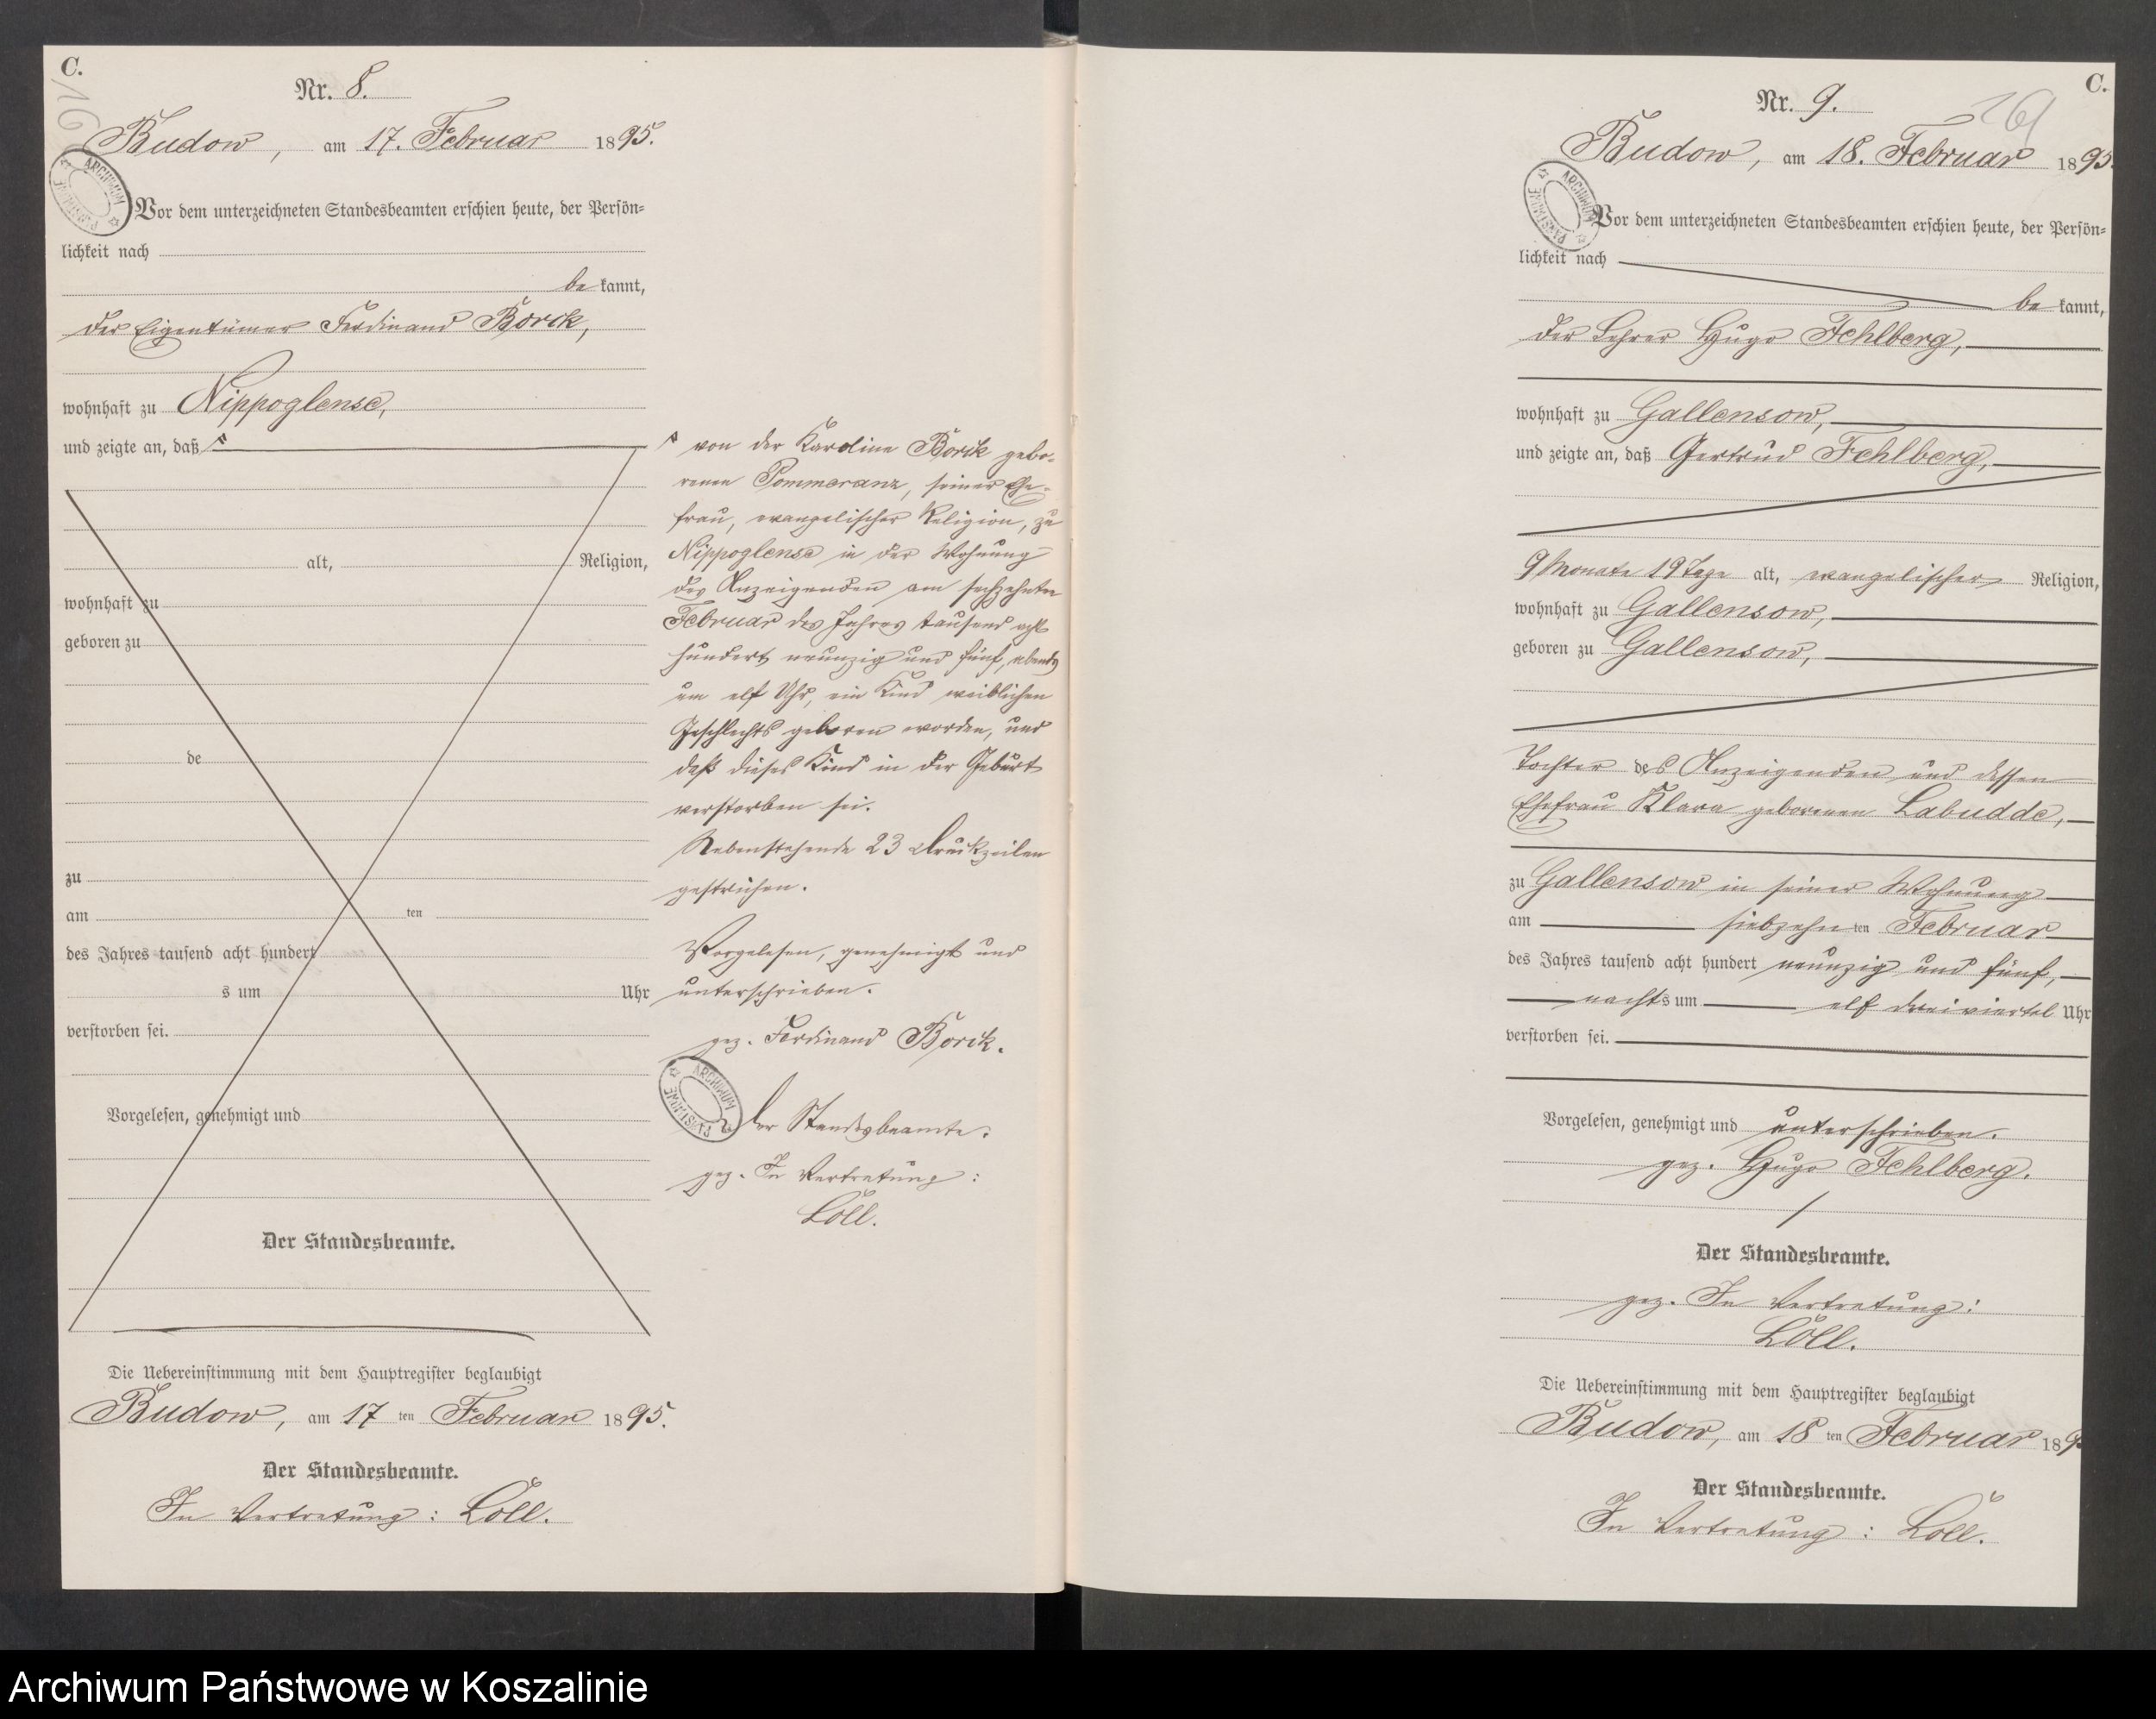 C.
Nr. 8.
Budow, am 17. Februar 1895.
Vor dem unterzeichneten Standesbeamten erschien heute, der Persön=
lichkeit nach
be kannt,
der Eigentümer Ferdinand Borck,
wohnhaft zu Nippoglense,
und zeigte an, daß
alt, Religion,
wohnhaft zu
geboren zu
de
zu
am ten
des Jahres tausend acht hundert
s um Uhr
verstorben sei.
Vorgelesen, genehmigt und
Der Standesbeamte.
von der Karoline Borck gebo-
renen Pommeranz, seiner Ehe-
frau, evangelischer Religion, zu
Nippoglense in der Wohnung
des Anzeigenden am sechzehnten
Februar des Jahres tausend acht
hundert neunzig und fünf, abends
um elf Uhr, ein Kind weiblichen
Geschlechts geboren worden, und
daß dieses Kind in der Geburt
verstorben sei.
Nebenstehende 23 Druckzeilen
gestrichen.
Vorgelesen, genehmigt und
unterschrieben.
gez. Ferdinand Borck.
Der Standesbeamte.
gez. In Vertretung:
Löll.
Die Uebereinstimmung mit dem Hauptregister beglaubigt
Budow, am 17 ten Februar 1895.
Der Standesbeamte.
In Vertretung: Löll.
C.
Nr. 9.
Budow, am 18. Februar 1895
Vor dem unterzeichneten Standesbeamten erschien heute, der Persön=
lichkeit nach
be kannt,
der Lehrer Hugo Fehlberg,
wohnhaft zu Gallensow,
und zeigte an, daß Gertrud Fehlberg,
9 Monate 19 Tage alt, evangelischer Religion,
wohnhaft zu Gallensow,
geboren zu Gallensow,
Tochter des Anzeigenden und dessen
Ehefrau Klara geborenen Labudde,
zu Gallensow in seiner Wohnung
am siebzehn ten Februar
des Jahres tausend acht hundert neunzig und fünf,
nachts um elf dreiviertel Uhr
verstorben sei.
Vorgelesen, genehmigt und unterschrieben.
gez. Hugo Fehlberg.
Der Standesbeamte.
gez. In Vertretung:
Löll.
Die Uebereinstimmung mit dem Hauptregister beglaubigt
Budow, am 18 ten Februar 189
Der Standesbeamte.
In Vertretung: Löll.
Archiwum Państwowe w Koszalinie